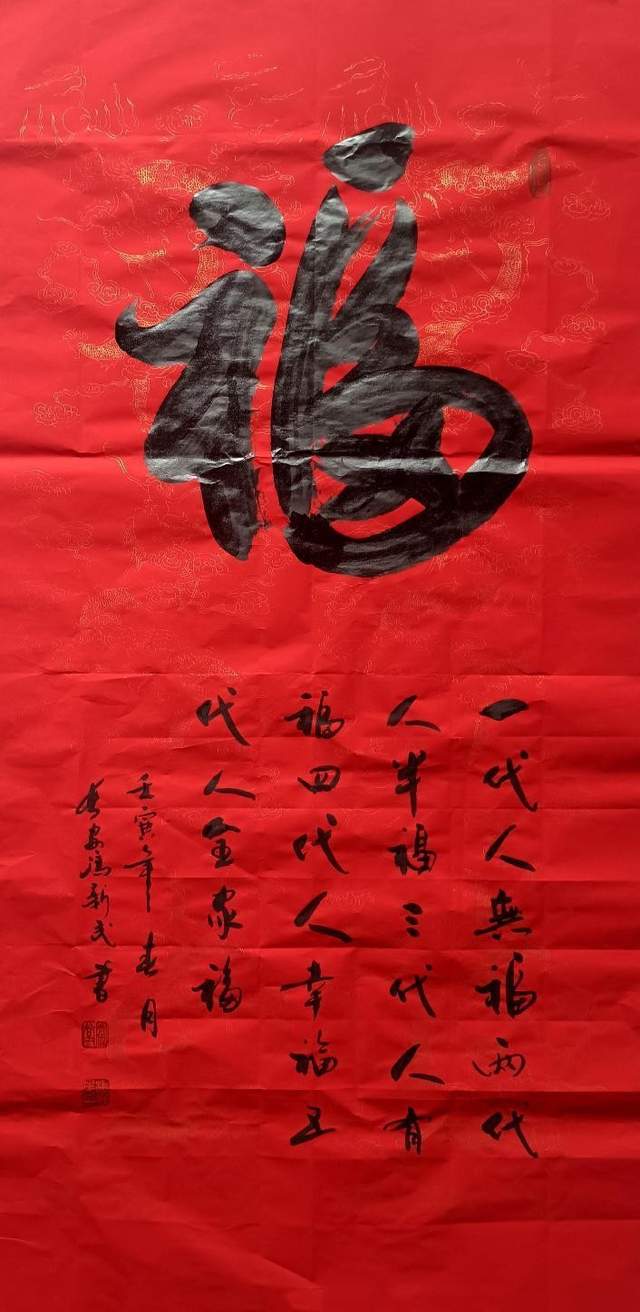 福
一代人無福两代
人半福三代人有
福四代人幸福五
代人全家福
壬寅年春月
长安冯新民書